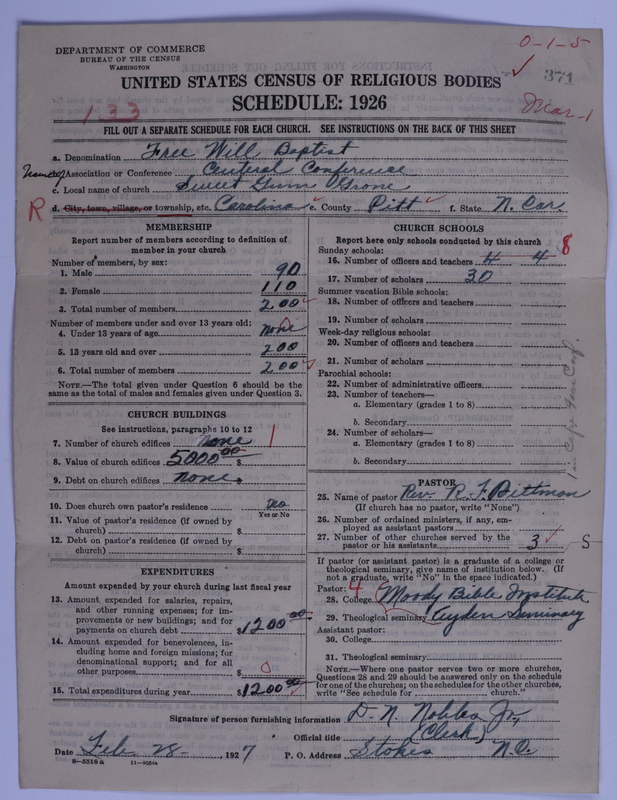 DEPARTMENT OF COMMERCE
BUREAU OF THE CENSUS
WASHINGTON
0-1-5
371
UNITED STATES CENSUS OF RELIGIOUS BODIES
SCHEDULE: 1926
133
Mar-1
FILL OUT A SEPARATE SCHEDULE FOR EACH CHURCH. SEE INSTRUCTIONS ON THE BACK OF THIS SHEET
a. Denomination Free Will Baptist
b. Association or Conference Central Conference
c. Local name of church Sweet Gum Grove
R d. City, town, village, or township, etc. Carolina e. County Pitt f. State N. Car.
MEMBERSHIP
Report number of members according to definition of
member in your church
Number of members, by sex:
1. Male 90
2. Female 110
3. Total number of members 200
Number of members under and over 13 years old:
4. Under 13 years of age none
5. 13 years old and over 200
6. Total number of members 200
NOTE.—The total given under Question 6 should be
same as the total of males and females given under Question 3.
CHURCH BUILDINGS
See instructions, paragraphs 10 to 12
7. Number of church edifices none 1
8. Value of church edifices 5000.00 $
9. Debt on church edifices none $
10. Does church own pastor's residence no
Yes or No
11. Value of pastor's residence (if owned by
church) $
12. Debt on pastor's residence (if owned by
church) $
EXPENDITURES
Amount expended by your church during last fiscal year
13. Amount expended for salaries, repairs,
and other running expenses; for im-
provements or new buildings; and for
payments on church debt $1200.00
14. Amount expended for benevolences, in-
cluding home and foreign missions; for
denominational support; and for all
other purposes $ 0
15. Total expenditures during year $1200.00
CHURCH SCHOOLS
Report here only schools conducted by this church
Sunday schools:
16. Number of officers and teachers 4 4 8
17. Number of scholars 30
Summer vacation Bible schools:
18. Number of officers and teachers
19. Number of scholars
Week-day religious schools:
20. Number of officers and teachers
21. Number of scholars
Parochial schools:
22. Number of administrative officers
23. Number of teachers—
a. Elementary (grades 1 to 8)
b. Secondary
24. Number of scholars—
a. Elementary (grades 1 to 8)
b. Secondary
PASTOR
25. Name of pastor Rev. R. F. Pittman
(If church has no pastor, write "None")
26. Number of ordained ministers, if any, em-
ployed as assistant pastors
27. Number of other churches served by the
pastor or his assistants 3 S
If pastor (or assistant pastor) is a graduate of a college or
theological seminary, give name of institution below. (If
not a graduate, write "No" in the space indicated.)
Pastor: 4
28. College Moody Bible Institute
29. Theological seminary Ayden Seminary
Assistant pastor:
30. College
31. Theological seminary
NOTE.—Where one pastor serves two or more churches,
Questions 28 and 29 should be answered only on the schedule
for one of the churches; on the schedules for the other churches,
write "See schedule for church."
Signature of person furnishing information D. N. Nobles Jr.,
Official title (Clerk)
Date Feb 28 1927 P. O. Address Stokes N.C.
8-5518 a 11-9034a